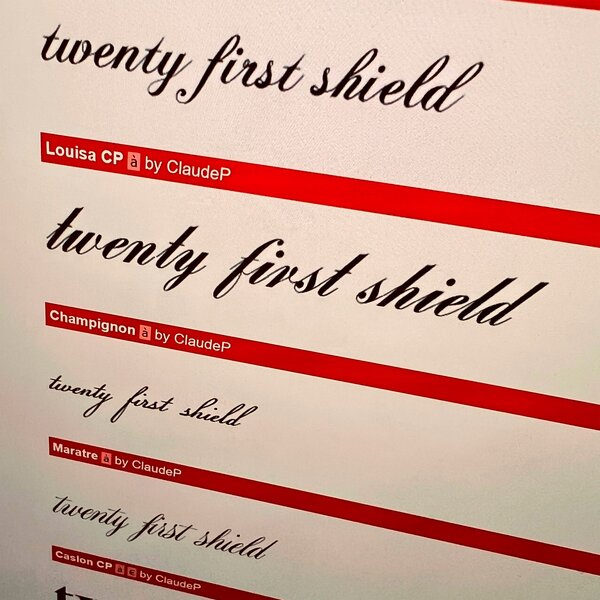 twenty first shield
Louisa CP à by ClaudeP
twenty first shield
Champignon à by ClaudeP
twenty first shield
Maratre à by ClaudeP
twenty first shield
Caslon CP à € by ClaudeP